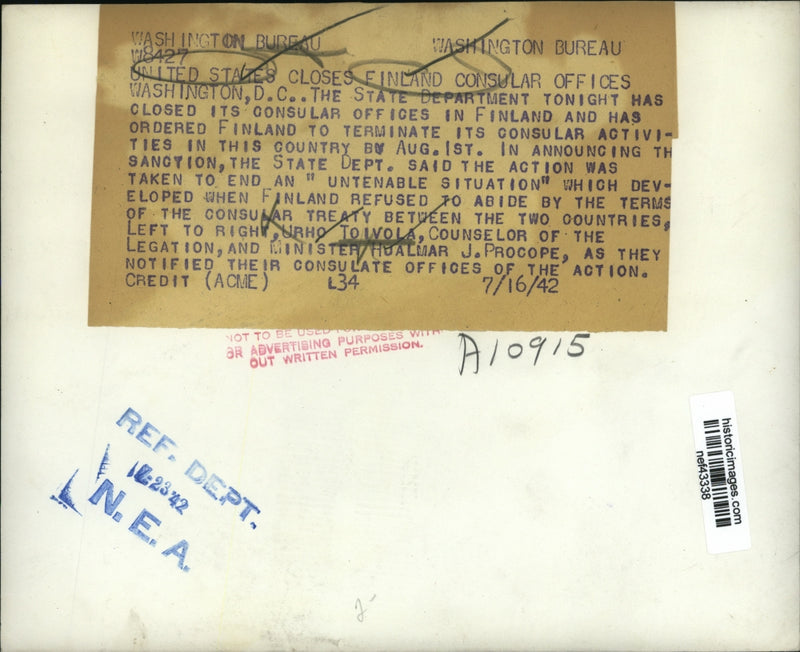 WASHINGTON BUREAU WASHINGTON BUREAU
W8427
UNITED STATES CLOSES FINLAND CONSULAR OFFICES
WASHINGTON, D.C.. THE STATE DEPARTMENT TONIGHT HAS
CLOSED ITS CONSULAR OFFICES IN FINLAND AND HAS
ORDERED FINLAND TO TERMINATE ITS CONSULAR ACTIVI-
TIES IN THIS COUNTRY BY AUG. 1ST. IN ANNOUNCING TH
SANCTION, THE STATE DEPT. SAID THE ACTION WAS
TAKEN TO END AN " UNTENABLE SITUATION" WHICH DEV-
ELOPED WHEN FINLAND REFUSED TO ABIDE BY THE TERMS
OF THE CONSULAR TREATY BETWEEN THE TWO COUNTRIES,
LEFT TO RIGHT, URHO TOIVOLA, COUNSELOR OF THE
LEGATION, AND MINISTER HJALMAR J. PROCOPE, AS THEY
NOTIFIED THEIR CONSULATE OFFICES OF THE ACTION.
CREDIT (ACME) L34 7/16/42
NOT TO BE USED
OR ADVERTISING PURPOSES WITH-
OUT WRITTEN PERMISSION.
A10915
REF. DEPT.
23 '42
N.E.A.
historicimages.com
nef43338
2-